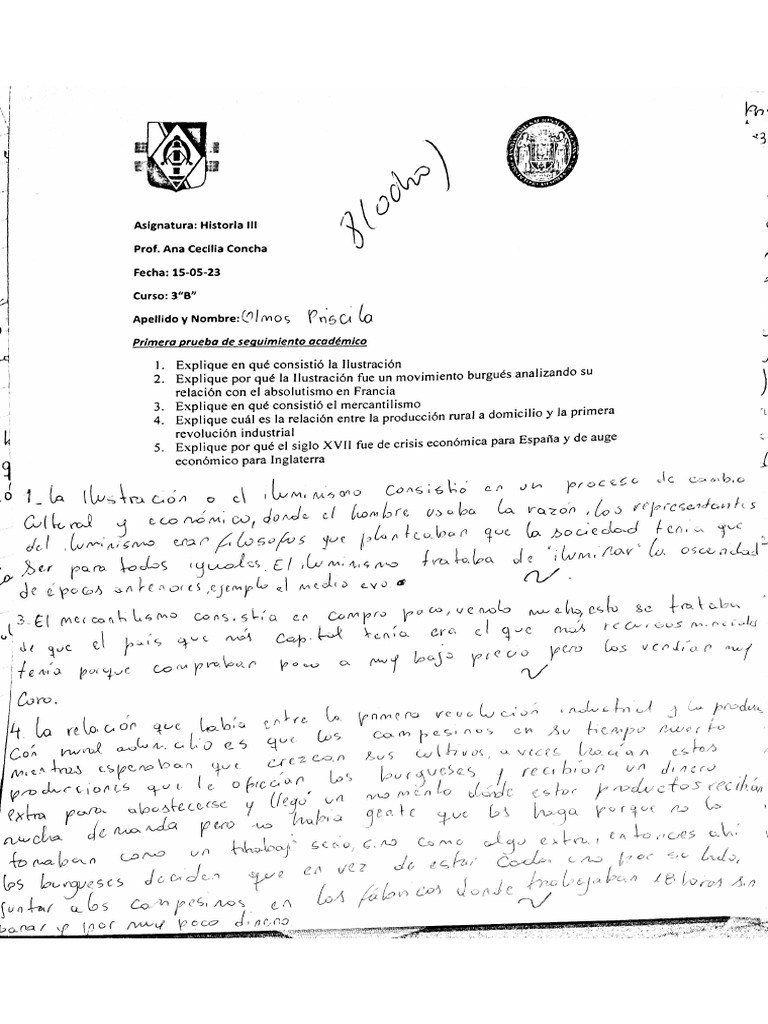 8 (ocho)
Asignatura: Historia III
Prof. Ana Cecilia Concha
Fecha: 15-05-23
Curso: 3"B"
Apellido y Nombre: Olmos Priscila
Primera prueba de seguimiento académico
1. Explique en qué consistió la Ilustración
2. Explique por qué la Ilustración fue un movimiento burgués analizando su
relación con el absolutismo en Francia
3. Explique en qué consistió el mercantilismo
4. Explique cuál es la relación entre la producción rural a domicilio y la primera
revolución industrial
5. Explique por qué el siglo XVII fue de crisis económica para España y de auge
económico para Inglaterra
1_ La Ilustración o el iluminismo consistió en un proceso de cambio
cultural y económico, donde el hombre usaba la razón, los representantes
del iluminismo eran filosofos que planteaban que la sociedad tenia que
ser para todos iguales. El iluminismo trataba de "iluminar" la oscuridad
de épocas anteriores, ejemplo el medio evo.
3. El mercantilismo consistía en compro poco, vendo mucho, esto se trataba
de que el país que más capital tenía era el que más recursos minerales
tenía porque compraban poco a muy bajo precio pero los vendían muy
caro.
4. La relación que había entre la primera revolución industrial y la produc
ción rural a domicilio es que los campesinos en su tiempo muerto
mientras esperaban que crezcan sus cultivos, a veces hacían estas
producciones que le ofrecían los burgueses y recibían un dinero
extra para abastecerse y llegó un momento dónde estos productos recibían
mucha demanda pero no había gente que los haga porque no lo
tomaban como un trabajo serio, sino como algo extra, entonces ahí
los burgueses deciden que en vez de estar cada uno por su lado,
juntar a los campesinos en las fábricas donde trabajaban 18 horas sin
parar y por muy poco dinero